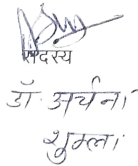 सदस्य
डॉ. अर्चना
शुक्ला